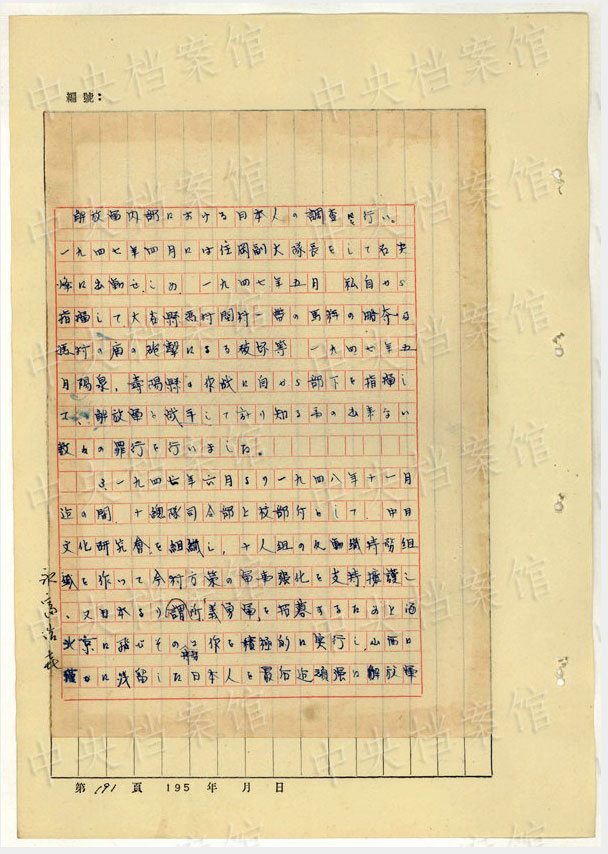 編號:
解放軍内部に於ける日本人の調査を行い。
一九四七年四月には住岡副大隊長をして石
峰に出動せしめ、一九四七年五月 私自から
指揮して大谷縣馬村関村一帯の馬料の略奪
馬村の廟の砲撃による破壊等 一九四七年五
月陽泉、壽陽縣の作戦に自から部下を指揮し
て、解放軍と戦斗して計り知る事の出来ない
数々の罪行を行いました。
3、一九四七年六月より一九四八年十一月
迄の間、十總隊司令部と校部付として、中日
文化研究會を組織し、十人組の反動
を作って今村方策の軍事強化を支持擁護し
、又日本より謂所義勇軍を招募するためと
北京に飛びその工作を積極的に実行し、山西に
僅かに残留した日本人を最后迄頑強に解放軍
永富浩喜
第191頁 195 年 月 日
中央档案馆